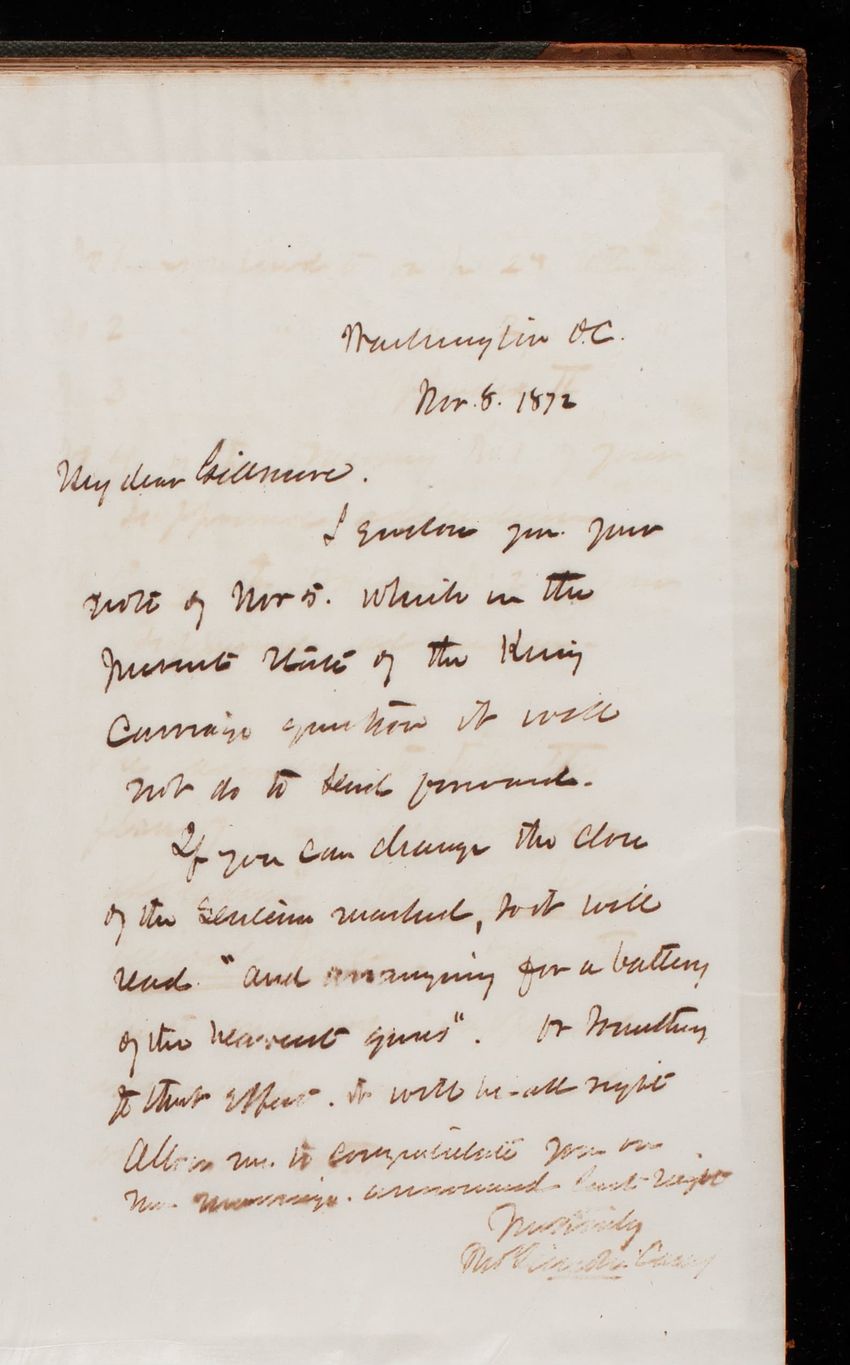 Washington D.C.
Nov. 8. 1872
My dear Gillmore.
I enclose you your
note of Nov 5. which in the
present state of the King
Carriage question it will
not do to send forward.
If you can change the close
of the sentence marked, so it will
read "and arranging for a battery
of the heaviest guns". or something
to that effect. it will be all right
Allow me to congratulate you on
marriage. announced last night
Thos Lincoln Casey